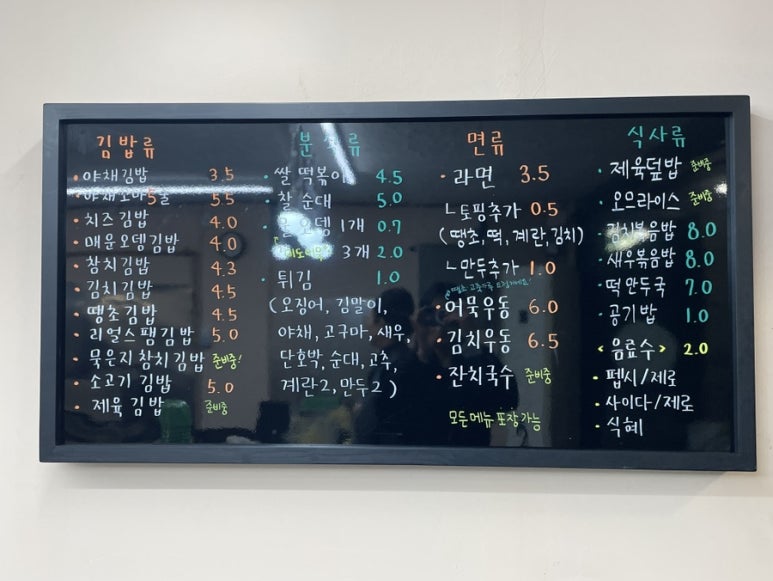 김밥류
야채김밥 3.5
야채꼬마5줄 5.5
치즈김밥 4.0
매운오뎅김밥 4.0
참치김밥 4.3
김치김밥 4.5
땡초김밥 4.5
리얼스팸김밥 5.0
묵은지 참치김밥 준비중!
소고기 김밥 5.0
제육 김밥 준비중
분식류
쌀 떡볶이 4.5
찰 순대 5.0
오뎅 1개 0.7
3개 2.0
튀김 1.0
(오징어, 김말이,
야채, 고구마, 새우,
단호박, 순대, 고추,
계란2, 만두2)
면류
라면 3.5
ㄴ토핑추가 0.5
(땡초, 떡, 계란, 김치)
ㄴ만두추가 1.0
어묵우동 6.0
김치우동 6.5
잔치국수 준비중
모든메뉴 포장가능
식사류
제육덮밥 준비중
오므라이스 준비중
김치볶음밥 8.0
새우볶음밥 8.0
떡만두국 7.0
공기밥 1.0
<음료수> 2.0
펩시/제로
사이다/제로
식혜